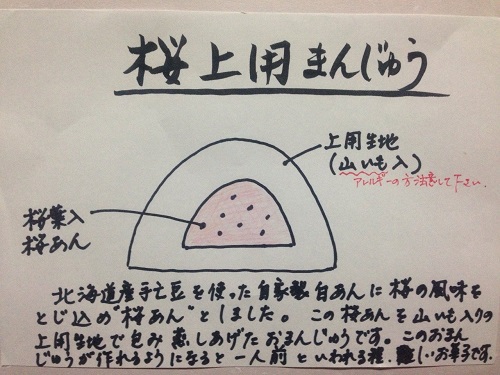 桜上用まんじゅう
上用生地
(山いも入)
アレルギーの方注意して下さい.
桜葉入
桜あん
北海道産手亡豆を使った自家製白あんに桜の風味を
とじ込め"桜あん"としました。この桜あんを山いも入りの
上用生地で包み蒸しあげたおまんじゅうです。このおまん
じゅうが作れるようになると一人前といわれる程、難しいお菓子です。